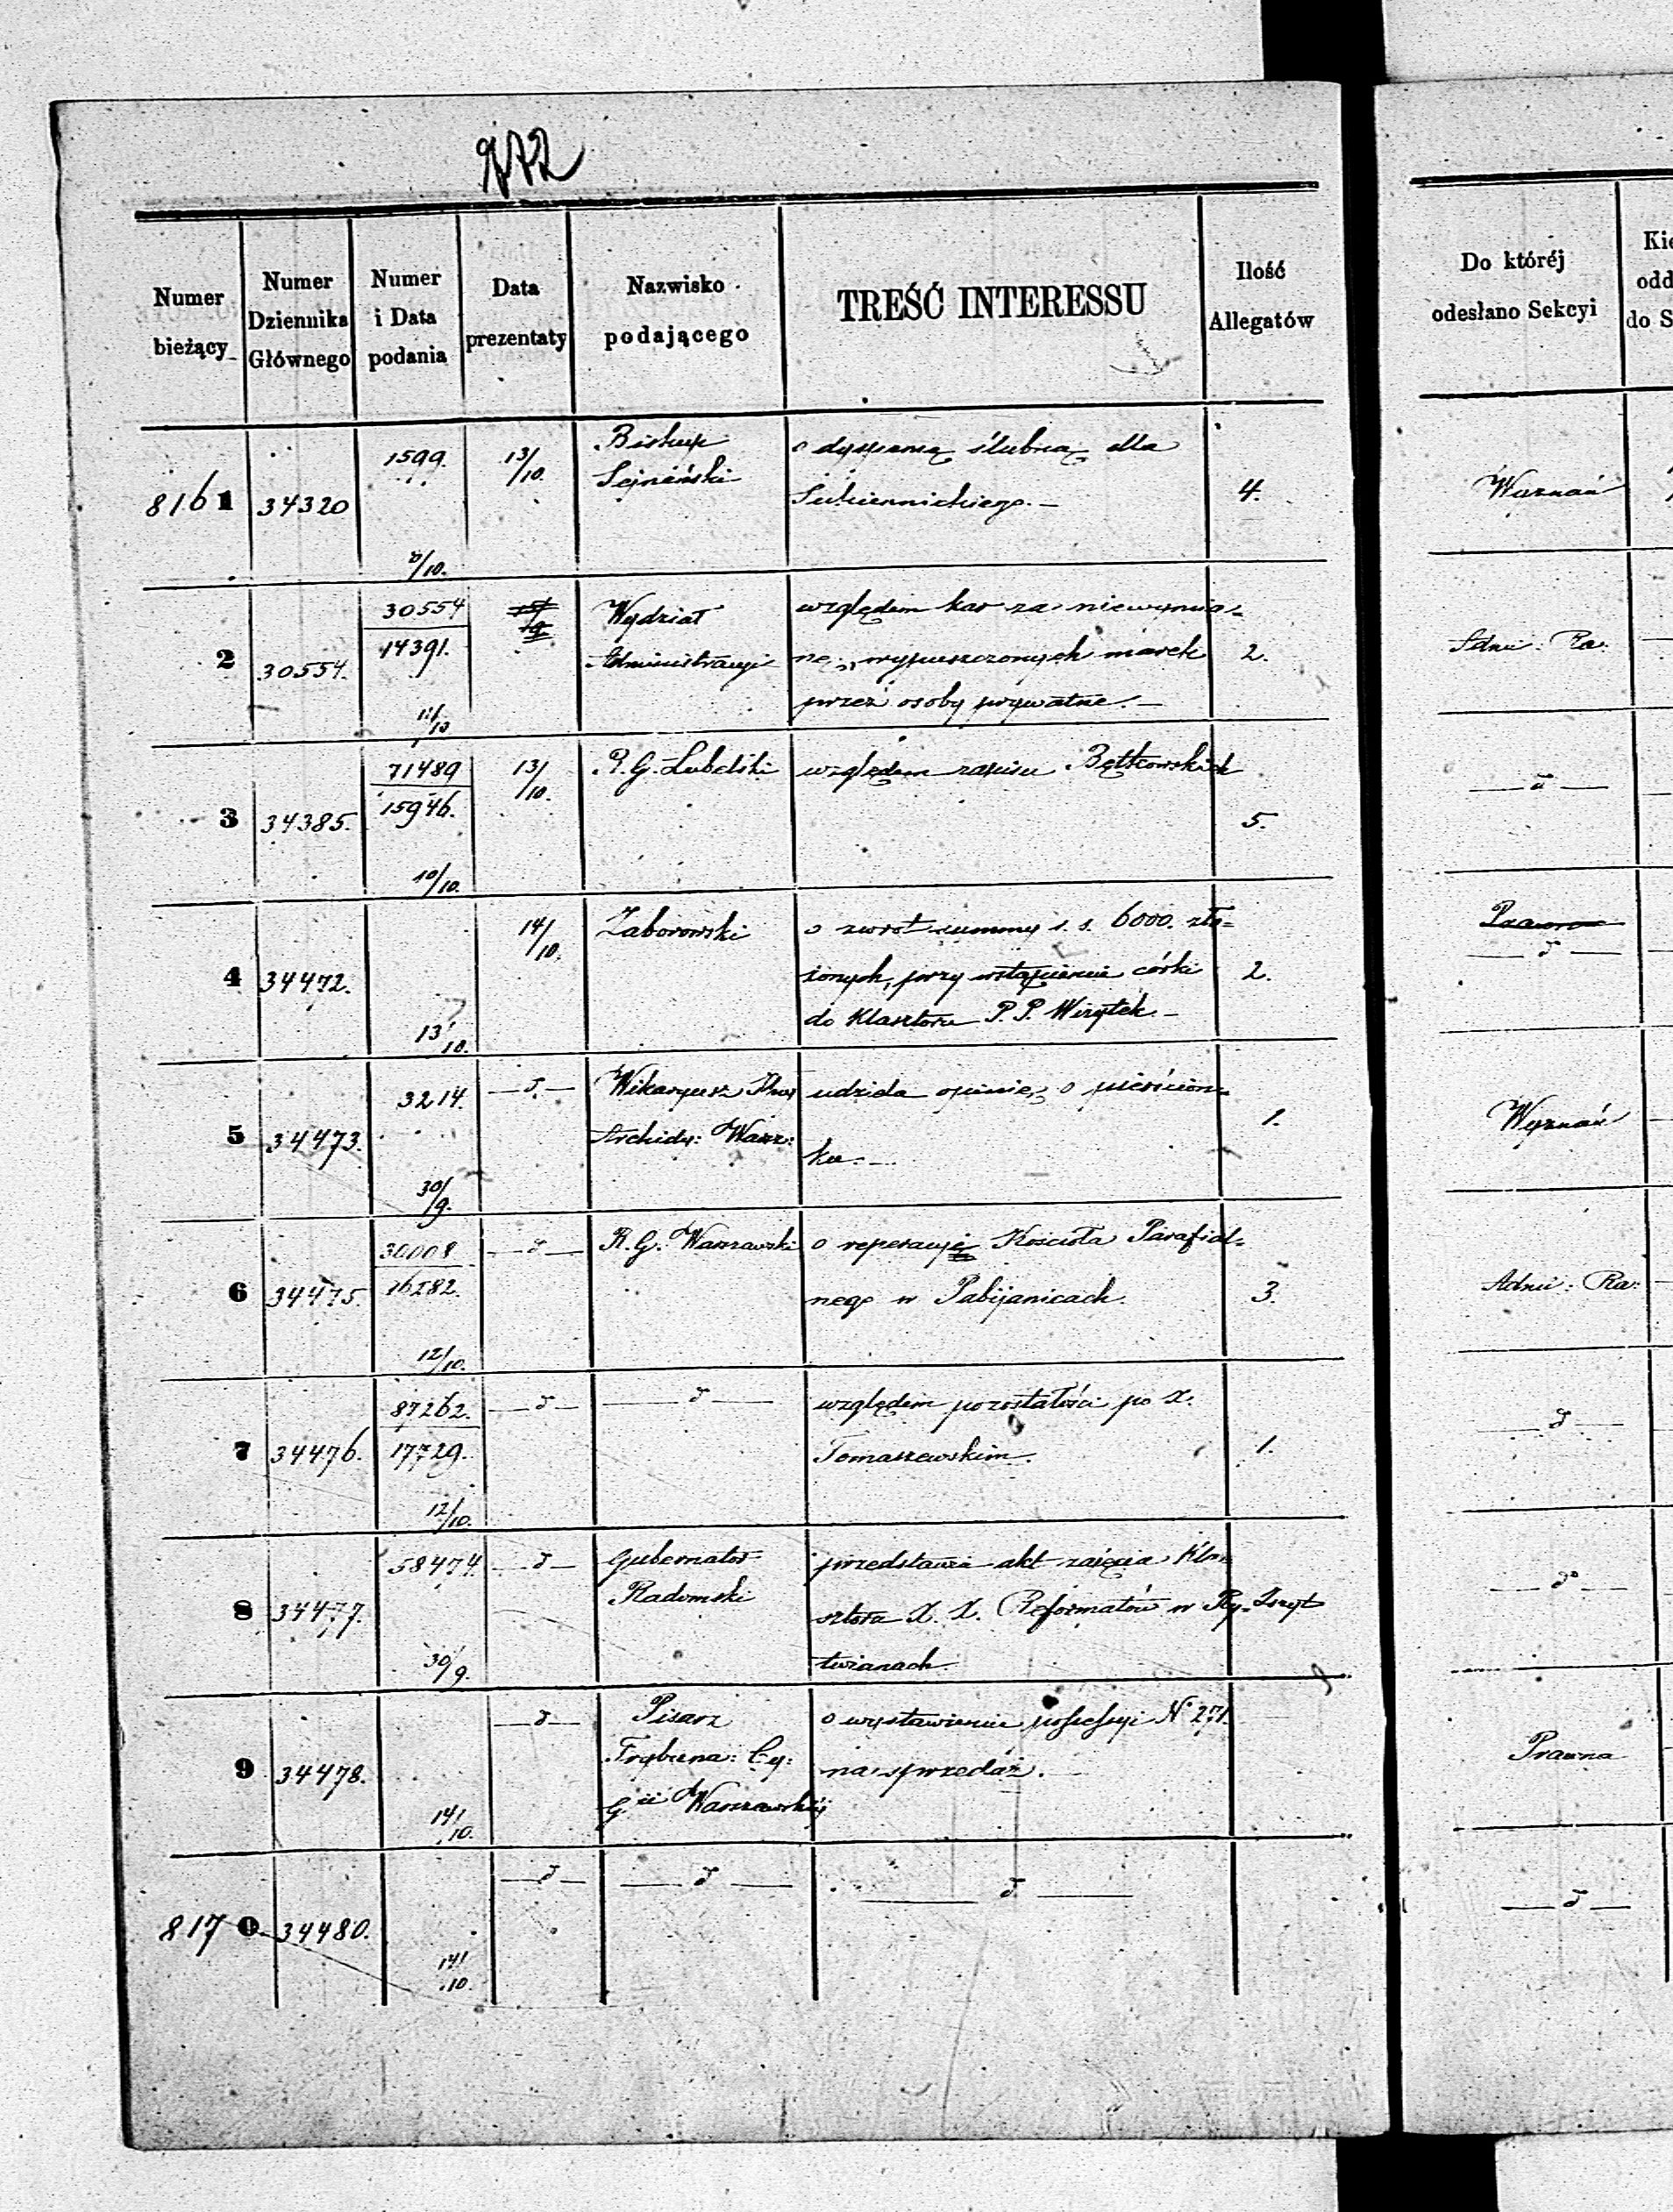 272
Numer bieżący
Numer Dziennika Głównego
Numer i Data podania
Data prezentaty
Nazwisko podającego
TREŚĆ INTERESSU
Ilość Allegatów
Do któréj odesłano Sekcyi
Kie
odd
do S
8161 34320 1599. 13/10. Biskup o dyspensę ślubną dla 4. Wyznań
Sejneński Sukiennickiego. —
/10.
2 30554. 30554 Wydział względem kar za niewymia= 2. Adm: Ra:
14391. Administracyi ne, wypuszczonych marek
11/10 przez osoby prywatne. —
3 34385. 71489 13/10. R. G. Lubelski względem zapisu Bętkowskich 5. — d —
15946.
10/10.
4 34472. 14/10. Zaborowski o zwrot summy r. s. 6000. zło= 2. Prawna
żonych, przy wstąpieniu córki — d —
13/10. do Klasztoru P. P. Wizytek —
5 34473. 3214. — d — Wikaryusz udziela opinię, o pierścion= 1. Wyznań
Archidy: Warsz: ku. —
30/9.
6 34475. 30008 — d — R. G. Warszawski o reperacyję Kościoła Parafial= 3. Adm: Ra:
16282. nego w Pabijanicach.
12/10.
7 34476. 87262. — d — — d — względem pozostałości po X. 1. — d —
17729. Tomaszewskim.
12/10.
8 34477. 58474. — d — Gubernator przedstawia akt zajęcia Kla= — d —
Radomski sztoru X. X. Reformatów w Py= Zszyt
30/9. twianach.
9 34478. — d — Pisarz o wystawienie possessyi N° 271. Prawna
Trybuna: Cy: na sprzedaż.
14/10. Gii Warszawskiéj
8170 34480. — d — — d — — d — — d —
14/10.